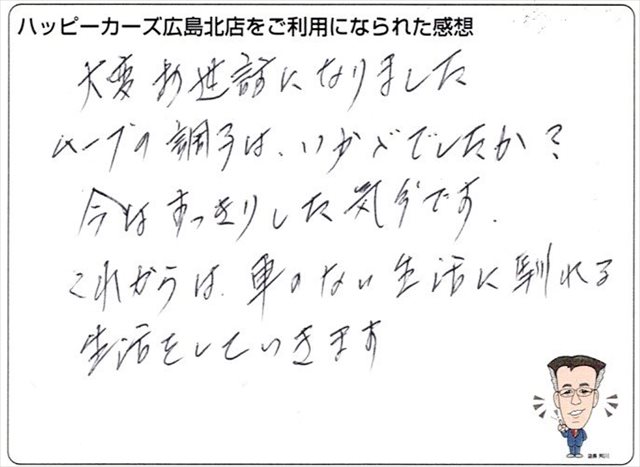 ハッピーカーズ広島北店をご利用になられた感想
大変お世話になりました
ムーブの調子は、いかがでしたか？
今はすっきりした気分です.
これからは、車のない生活に馴れる
生活をしていきます